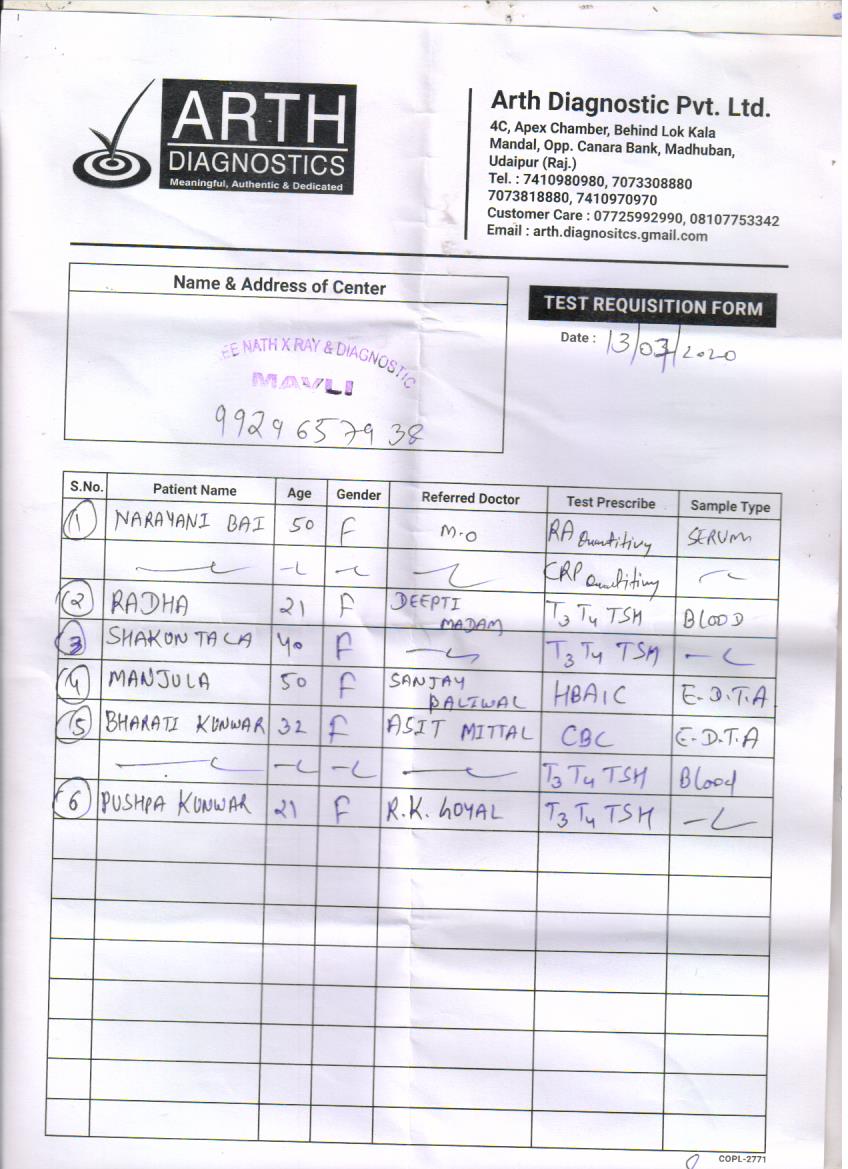 ARTH
DIAGNOSTICS
Meaningful, Authentic & Dedicated
Arth Diagnostic Pvt. Ltd.
4C, Apex Chamber, Behind Lok Kala
Mandal, Opp. Canara Bank, Madhuban,
Udaipur (Raj.)
Tel. : 7410980980, 7073308880
7073818880, 7410970970
Customer Care : 07725992990, 08107753342
Email : arth.diagnositcs.gmail.com
Name & Address of Center
EE NATH X RAY & DIAGNOSTIC
MAVLI
9929657938
TEST REQUISITION FORM
Date : 13/03/2020
S.No. Patient Name Age Gender Referred Doctor Test Prescribe Sample Type
1 NARAYANI BAI 50 F M.O RA Quantitivy SERUM
CRP Quantitivy
2 RADHA 21 F DEEPTI MADAM T3 T4 TSH BLOOD
3 SHAKONTALA 40 F T3 T4 TSH
4 MANJULA 50 F SANJAY PALIWAL HBA1C E.D.T.A
5 BHARATI KUNWAR 32 F ASIT MITTAL CBC E.D.T.A
T3 T4 TSH Blood
6 PUSHPA KUNWAR 21 F R.K. GOYAL T3 T4 TSH
COPL-2771